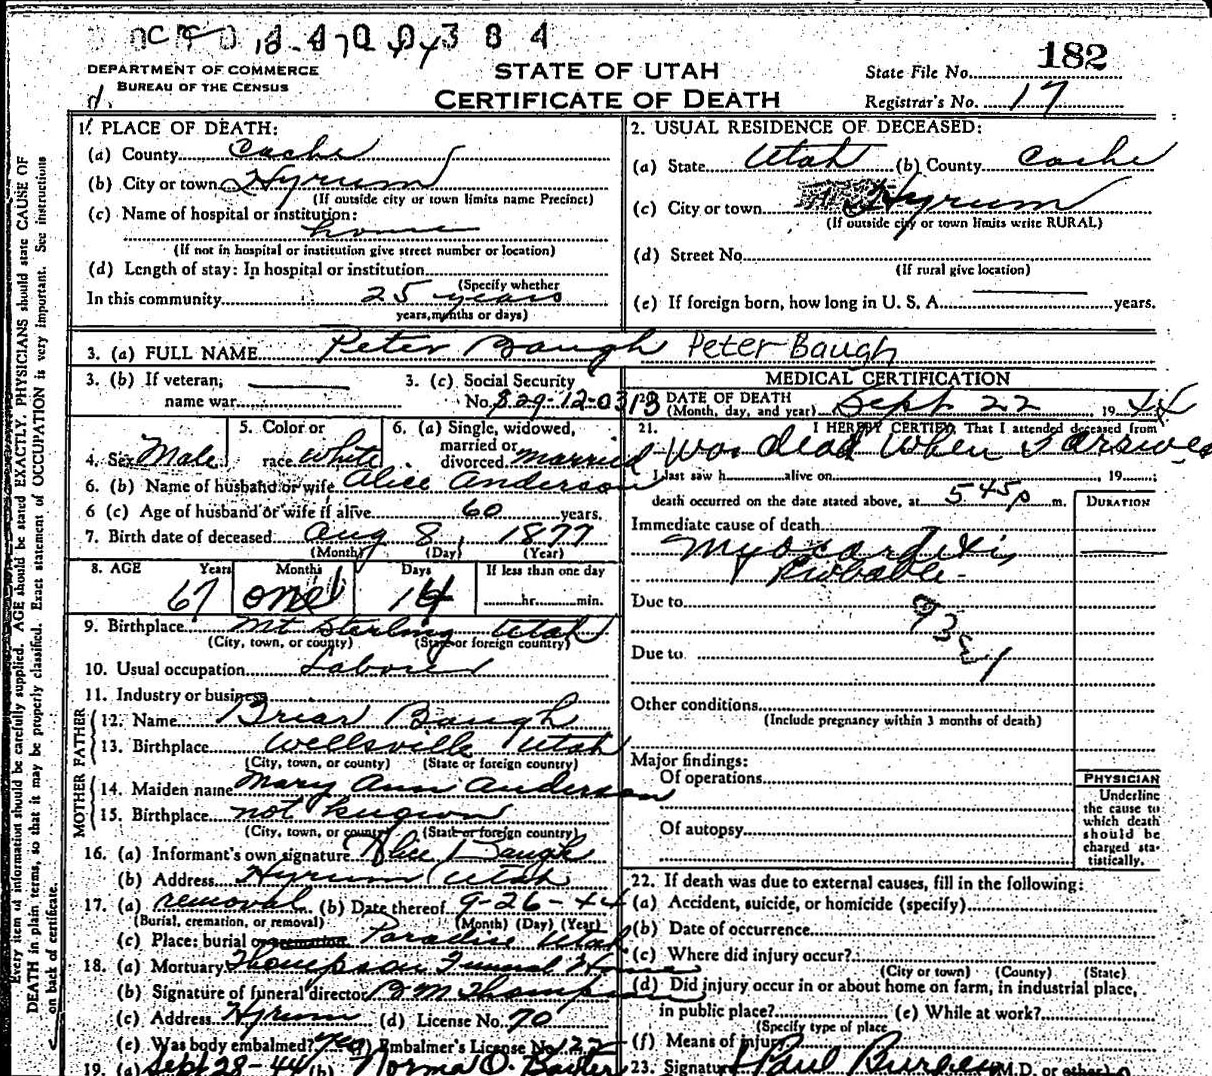 182
DEPARTMENT OF COMMERCE
BUREAU OF THE CENSUS
STATE OF UTAH
CERTIFICATE OF DEATH
State File No.
Registrar's No. 17
1. PLACE OF DEATH:
(a) County Cache
(b) City or town Hyrum
(If outside city or town limits name Precinct)
(c) Name of hospital or institution:
home
(If not in hospital or institution give street number or location)
(d) Length of stay: In hospital or institution
(Specify whether
In this community 25 years
years, months or days)
2. USUAL RESIDENCE OF DECEASED:
(a) State Utah (b) County Cache
(c) City or town Hyrum
(If outside city or town limits write RURAL)
(d) Street No.
(If rural give location)
(e) If foreign born, how long in U. S. A. years.
3. (a) FULL NAME Peter Baugh Peter Baugh
3. (b) If veteran,
name war
3. (c) Social Security
No. 529-12-0313
4. Sex Male
5. Color or
race white
6. (a) Single, widowed,
married or
divorced married
6. (b) Name of husband or wife Alice Anderson
6 (c) Age of husband or wife if alive 60 years.
7. Birth date of deceased Aug 8, 1877
(Month) (Day) (Year)
8. AGE Years Months Days If less than one day
67 one 14 hr. min.
9. Birthplace Mt Sterling Utah
(City, town, or county) (State or foreign country)
10. Usual occupation Laborer
11. Industry or business
FATHER
12. Name Briar Baugh
13. Birthplace Wellsville Utah
(City, town, or county) (State or foreign country)
MOTHER
14. Maiden name Mary Ann Anderson
15. Birthplace not known
(City, town, or county) (State or foreign country)
16. (a) Informant's own signature Alice Baugh
(b) Address Hyrum Utah
17. (a) removal (b) Date thereof 9-26-44
(Burial, cremation, or removal) (Month) (Day) (Year)
(c) Place: burial or cremation Paradise Utah
18. (a) Mortuary Thompson Funeral Home
(b) Signature of funeral director B M Thompson
(c) Address Hyrum (d) License No. 70
(e) Was body embalmed? yes (f) Embalmer's License No. 122
19. (a) Sept 28-44 (b) Norma O. Baxter
MEDICAL CERTIFICATION
20. DATE OF DEATH
(Month, day, and year) Sept 22 1944
21. I HEREBY CERTIFY, That I attended deceased from
Was dead when I arrived
I last saw h alive on , 19 ;
death occurred on the date stated above, at 5 45 p m.
DURATION
Immediate cause of death
Myocarditis
Probable
Due to
Due to
Other conditions
(Include pregnancy within 3 months of death)
Major findings:
Of operations
Of autopsy
PHYSICIAN
Underline
the cause to
which death
should be
charged sta-
tistically.
22. If death was due to external causes, fill in the following:
(a) Accident, suicide, or homicide (specify)
(b) Date of occurrence
(c) Where did injury occur?
(City or town) (County) (State)
(d) Did injury occur in or about home on farm, in industrial place,
in public place? (e) While at work?
(Specify type of place
(f) Means of injury
23. Signature Paul Burgess (M.D. or other)
Every item of information should be carefully supplied. AGE should be stated EXACTLY. PHYSICIANS should state CAUSE OF
DEATH in plain terms, so that it may be properly classified. Exact statement of OCCUPATION is very important. See instructions
on back of certificate.